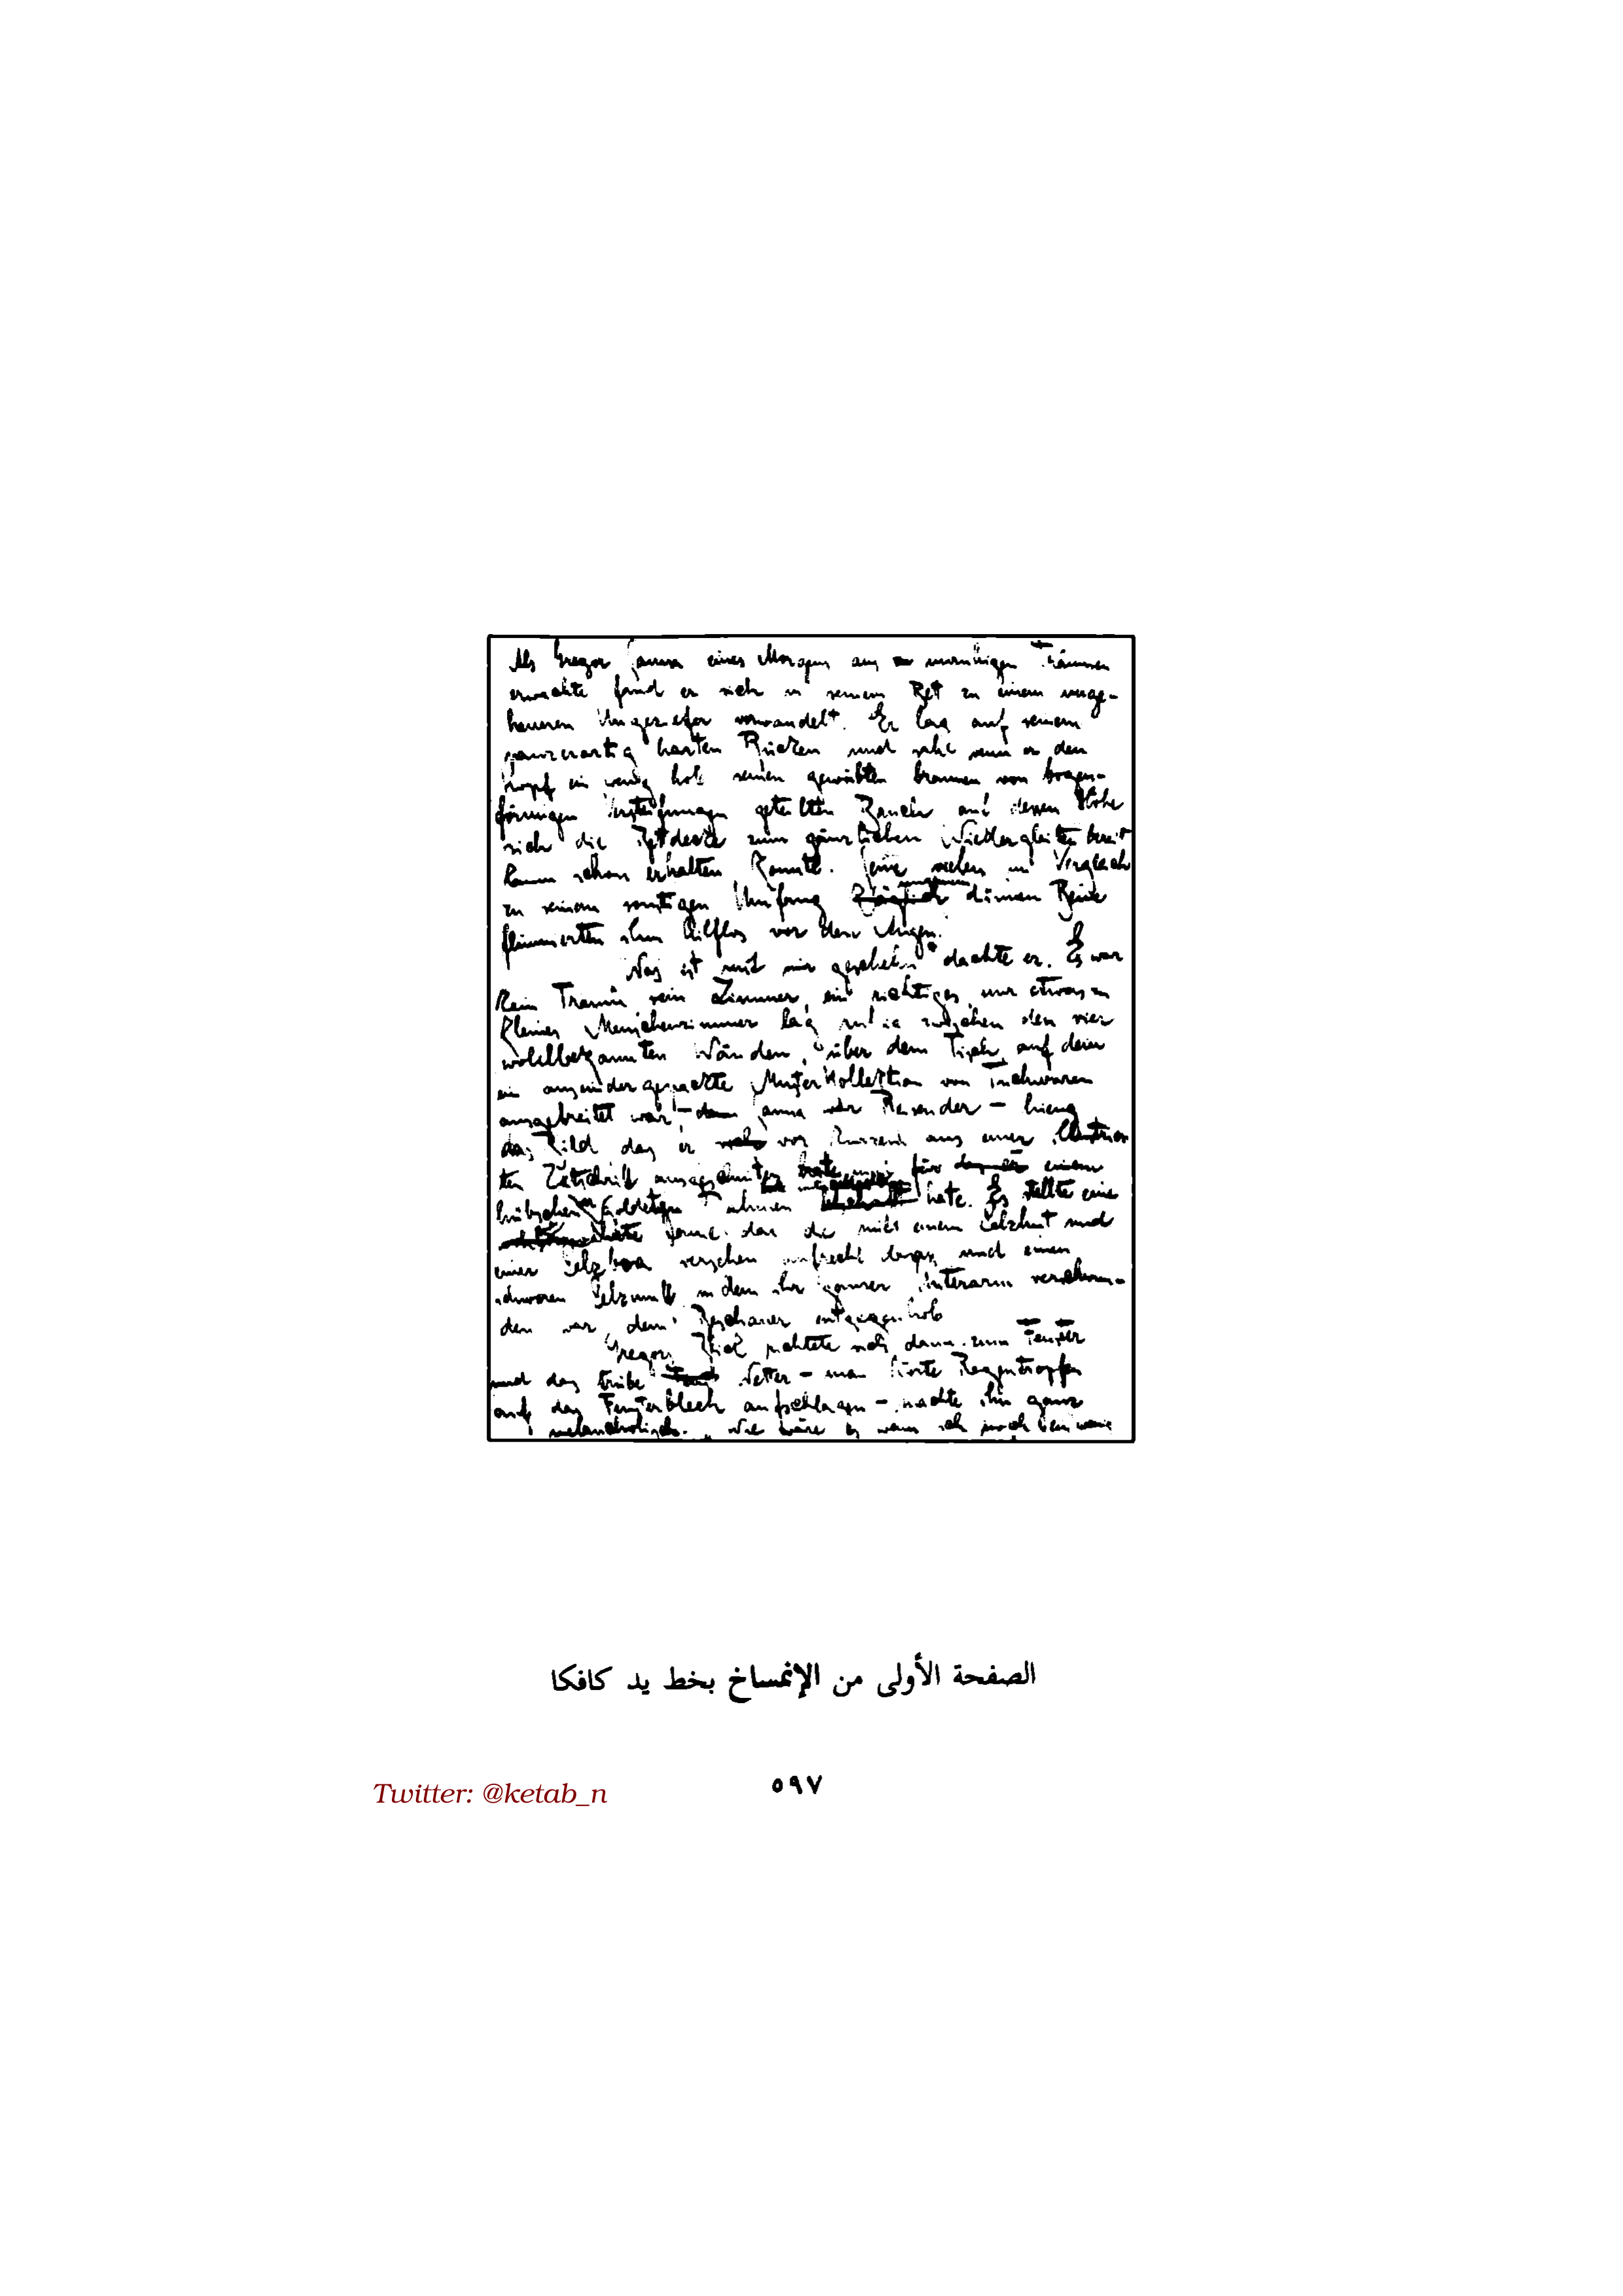 Als Gregor Samsa eines Morgens aus unruhigen Träumen
erwachte fand er sich in seinem Bett zu einem unge-
heueren Ungeziefer verwandelt. Er lag auf seinem
panzerartig harten Rücken und sah wenn er den
Kopf ein wenig hob seinen gewölbten braunen von bogen-
förmigen Versteifungen geteilten Bauch auf dessen Höhe
sich die Bettdecke zum gänzlichen Niedergleiten bereit
kaum schon erhalten konnte. Seine vielen im Vergleich
zu seinem sonstigen Umfang dünnen Beine
flimmerten ihm hilflos vor den Augen.
Was ist mit mir geschehen dachte er. Es war
kein Traum sein Zimmer, ein richtiges nur etwas zu
kleines Menschenzimmer lag ruhig zwischen den vier
wohlbekannten Wänden, über dem Tisch, auf dem
ein auseinandergepackte Musterkollektion von Tuchwaren
ausgebreitet war – Samsa war Reisender – hieng
das Bild das er vor Kurzem aus einer illustrier
ten Zeitschrift ausgeschnitten einem
hübschen vergoldeten Rahmen hatte. Es stellte eine
Dame dar die mit einem Pelzhut und
einer Pelzboa versehen aufrecht und einen
schweren Pelzmuff in dem ihr ganzer Unterarm verschwun-
den war, dem Beschauer entgegenhob
Gregors Blick richtete sich dann zum Fenster
und das trübe Wetter – man hörte Regentropfen
auf das Fensterblech aufschlagen – machte ihn ganz
melancholisch. „Wie wäre es wenn ich noch ein wenig
الصفحة الأولى من الإنمساخ بخط يد كافكا
Twitter: @ketab_n
٥٩٧